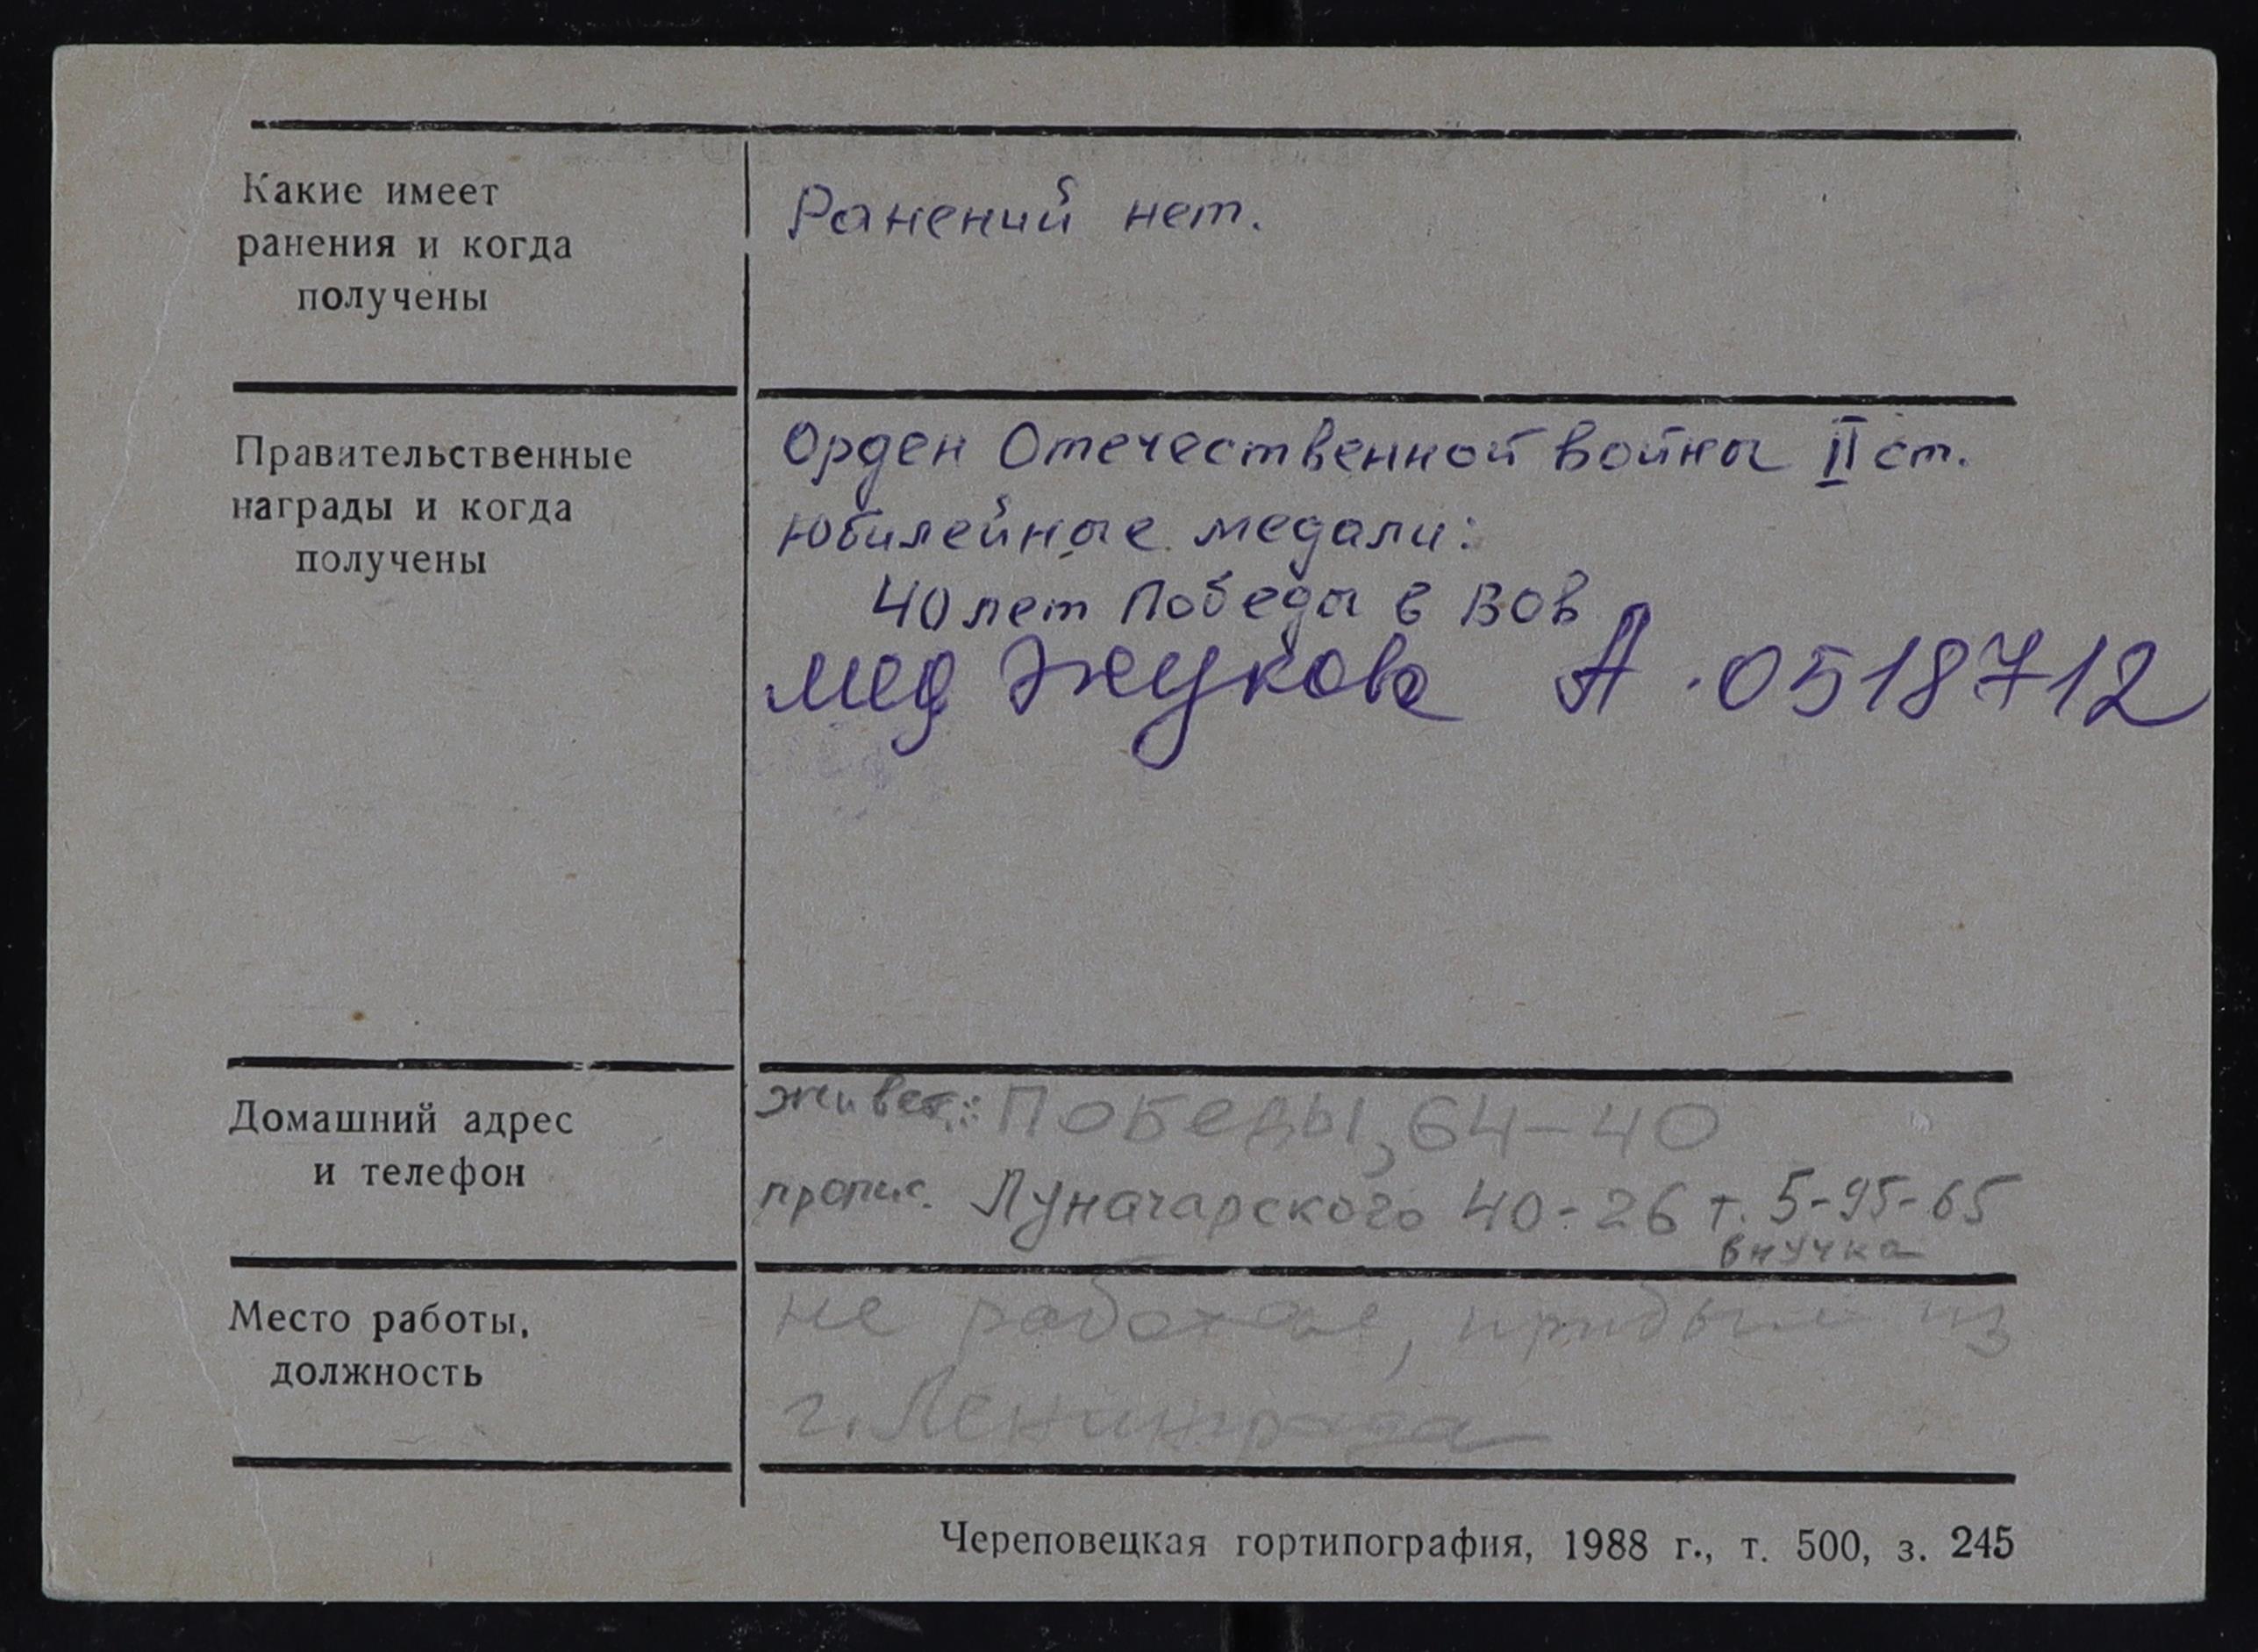 Какие имеет
ранения и когда
получены
Ранений нет.
Правительственные
награды и когда
получены
Орден Отечественной войны II ст.
юбилейные медали:
40 лет Победы в ВОВ
мед Жукова А · 0518712
Домашний адрес
и телефон
живет: Победы, 64-40
пропис. Луначарского 40-26 т. 5-95-65
внучка
Место работы,
должность
не работает, прибыл из
г. Ленинграда
Череповецкая гортипография, 1988 г., т. 500, з. 245